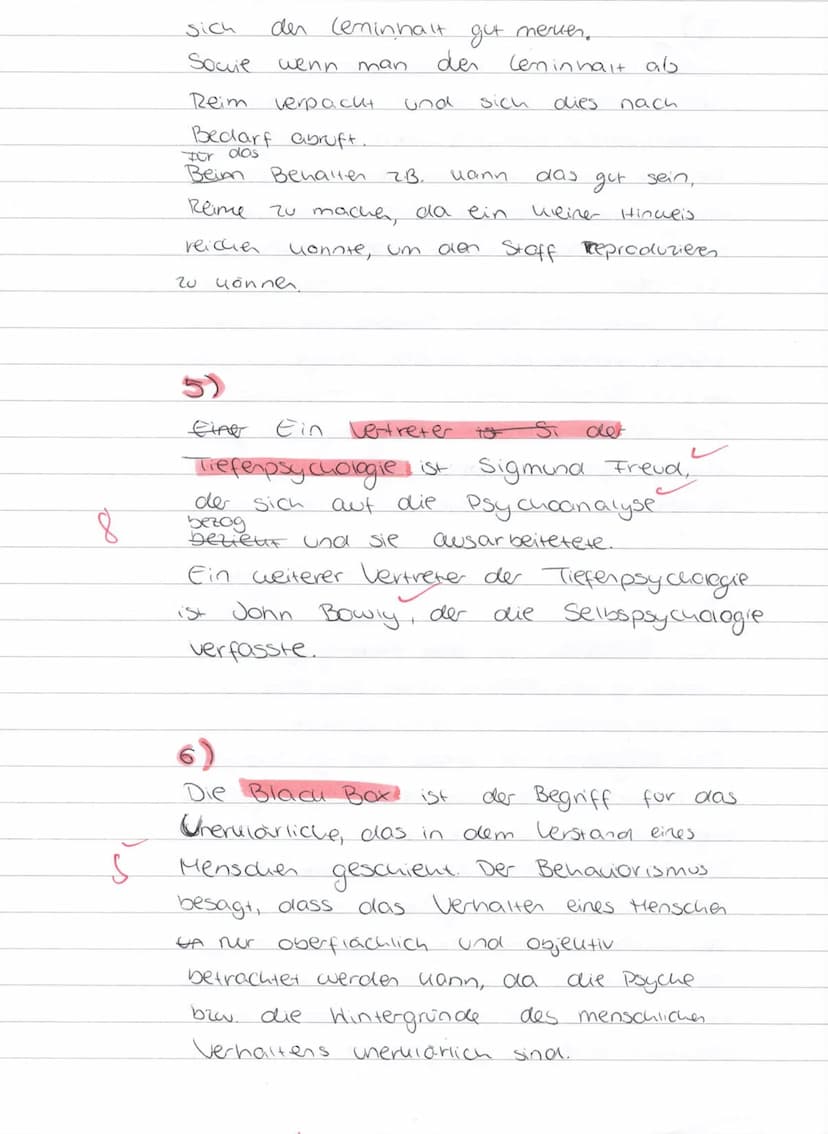 sich den Lerninhalt gut merken.
Sowie wenn man den Lerninhalt als
Reim verpackt und sich dies nach
Bedarf abruft.
Für das
Beim Behalten z.B. kann das gut sein,
Reime zu machen, da ein kleiner Hinweis
reichen könnte, um den Stoff reproduzieren
zu können.
5)
Einer Ein Vertreter ist Si der
Tiefenpsychologie ist Sigmund Freud,
der sich auf die Psychoanalyse
bezog
8 bezieht und sie ausarbeitetete.
Ein weiterer Vertreter der Tiefenpsychologie
ist John Bowly, der die Selbspsychologie
verfasste.
6)
Die Black Box ist der Begriff für das
Unerklärliche, das in dem Verstand eines
5 Menschen geschieht. Der Behaviorismus
besagt, dass das Verhalten eines Menschen
nur oberflächlich und objektiv
betrachtet werden kann, da die Psyche
bzw. die Hintergründe des menschlichen
Verhaltens unerklärlich sind.